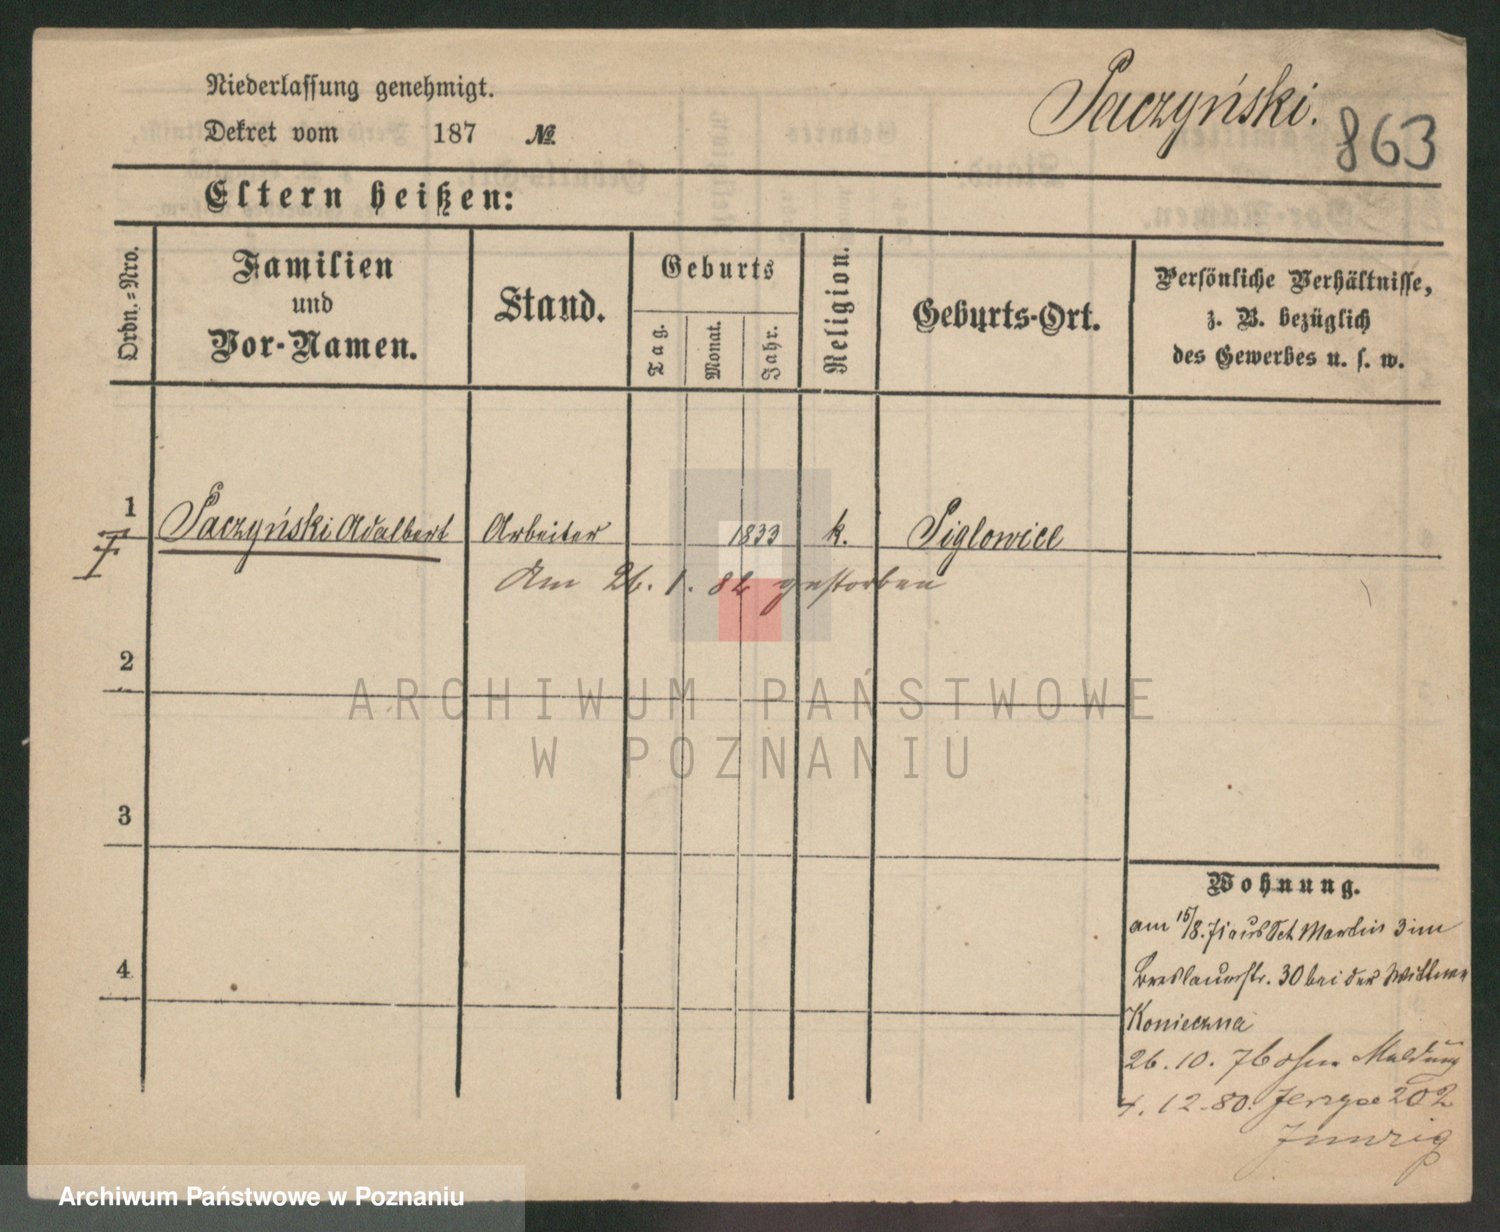 Niederlassung genehmigt.
Dekret vom 187 №
Paczyński.
863
Eltern heißen:
Ordn.=Nro.
Familien
und
Vor-Namen.
Stand.
Geburts
Tag.
Monat.
Jahr.
Religion.
Geburts-Ort.
Persönliche Verhältnisse,
z. B. bezüglich
des Gewerbes u. s. w.
1 Paczyński Adalbert Arbeiter 1833 k. Piglowice
Am 26. 1. 82 gestorben
2
ARCHIWUM PAŃSTWOWE
W POZNANIU
3
4
Wohnung.
am 15/8. 71 aus Sct Martin 3 im
Breslauerstr. 30 bei der Wittwe
Konieczna
26. 10. 76 ohne Meldung
4. 12. 80. Jerzyce 202
Archiwum Państwowe w Poznaniu